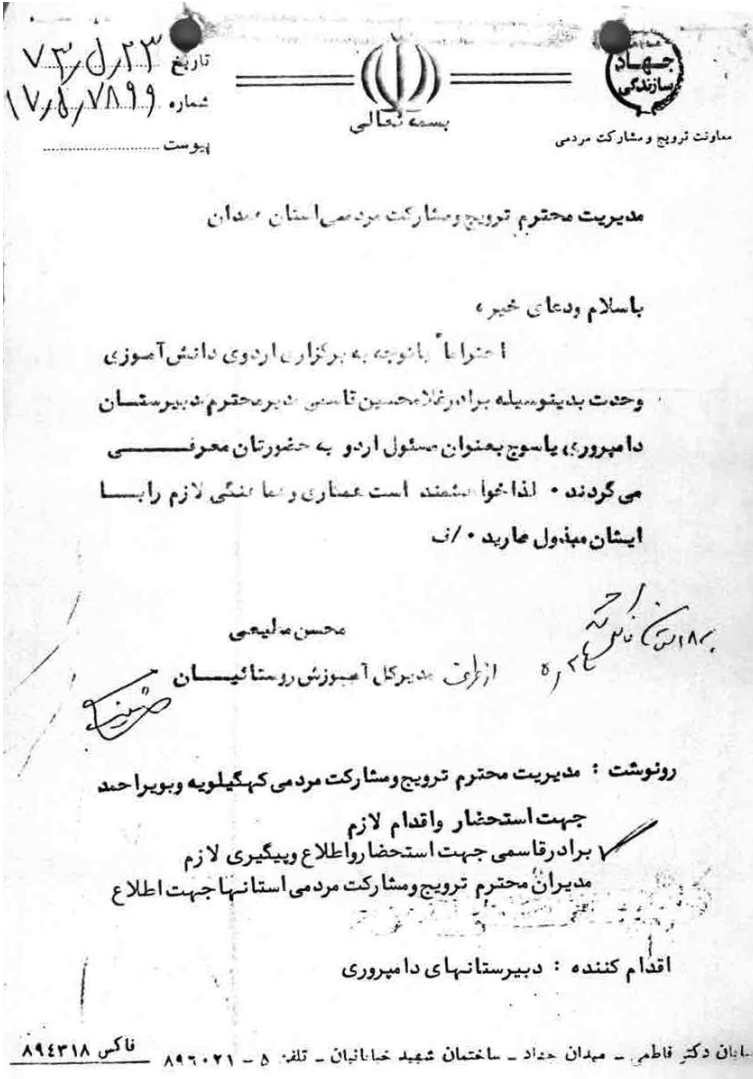 جهاد
سازندگی
معاونت ترویج و مشارکت مردمی
بسمه تعالی
تاریخ
شماره ۱۷٫۵٫۷۸۹۹
پیوست
مدیریت محترم ترویج ومشارکت مردمی استان همدان
باسلام ودعای خیر،
احتراما" باتوجه به برگزاری اردوی دانش آموزی
وحدت بدینوسیله برادرغلامحسین قاسمی مدیرمحترم دبیرستان
دامپروری یاسوج بعنوان مسئول اردو به حضورتان معرفی
می گردند ۰ لذاخواهشمند است همکاری وهماهنگی لازم رابا
ایشان مبذول دارید ۰ /ف
محسن
ازطرف مدیرکل آموزش روستائیان
رونوشت : مدیریت محترم ترویج ومشارکت مردمی کهگیلویه وبویراحمد
جهت استحضار واقدام لازم
برادرقاسمی جهت استحضارواطلاع وپیگیری لازم
مدیران محترم ترویج ومشارکت مردمی استانهاجهت اطلاع
اقدام کننده : دبیرستانهای دامپروری
دکتر فاطمی ـ میدان جهاد ـ ساختمان شهید خیابانیان ـ تلفن ۵ ـ ۸۹۶۰۲۱ فاکس ۸۹۴۳۱۸